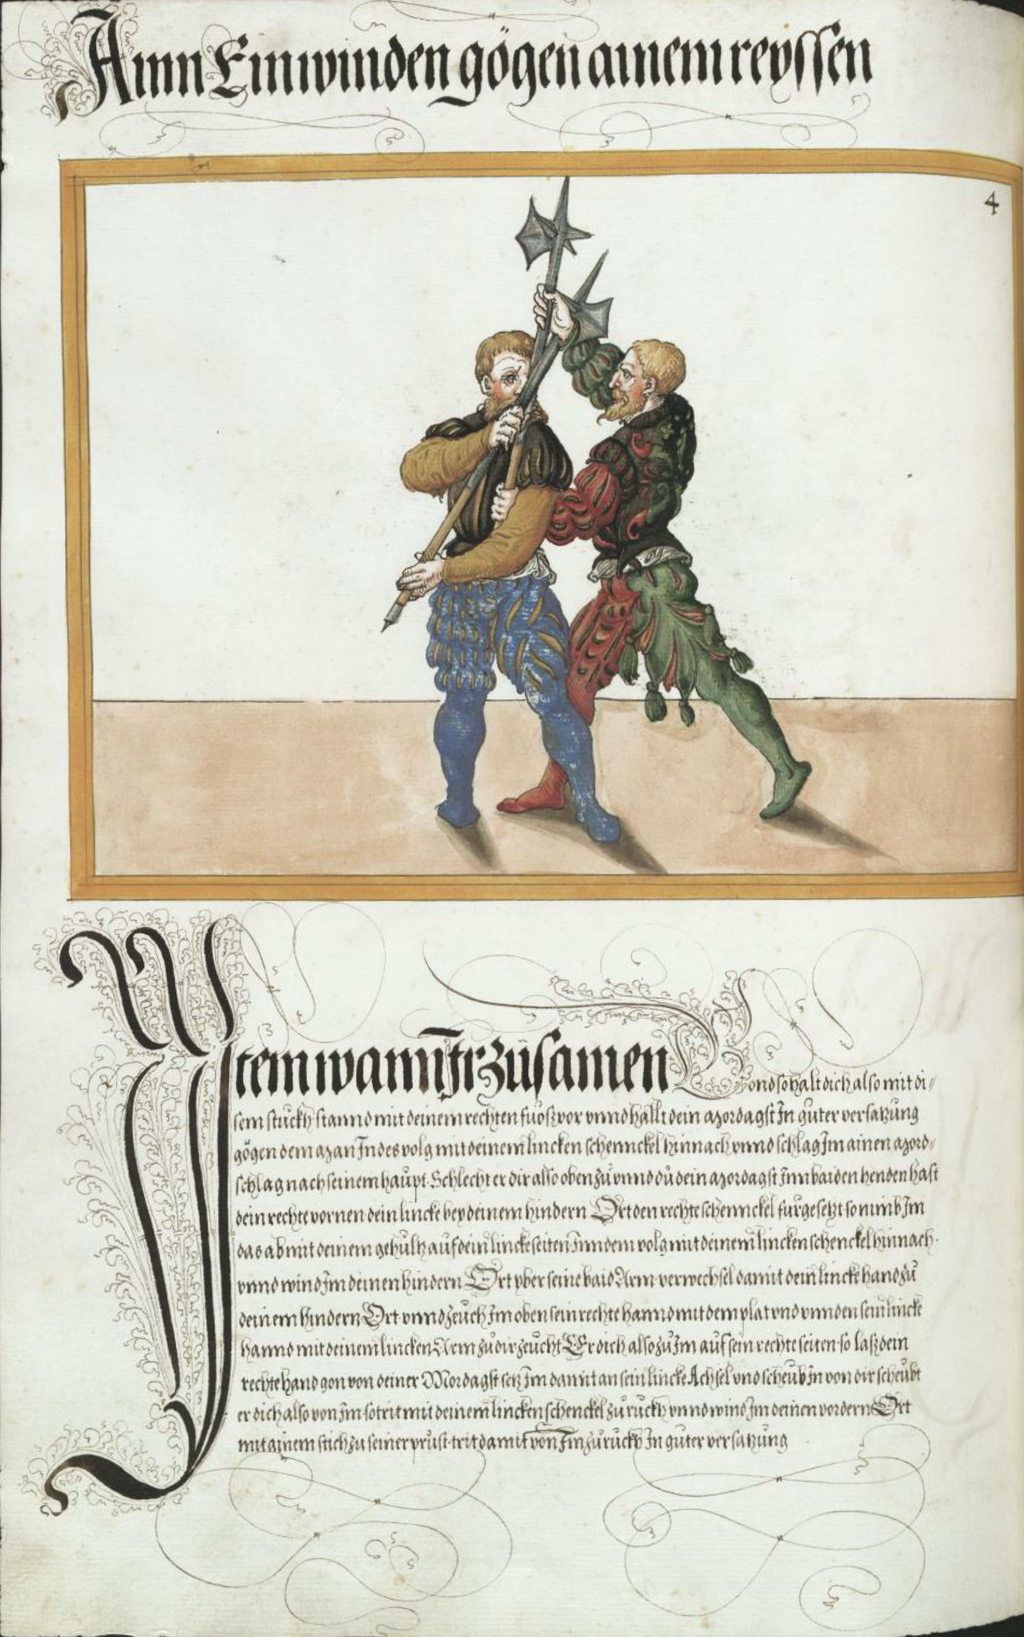 Ainn Einwinden gögen ainem reyssen
4
Item wann Ir züsamen
gond so halt dich also mit di-
sem stuckh stannd mit deinem rechten fuosz vor vnnd hallt dein mordagst In guter versatzung
gögen dem man Indes volg mit deinem lincken schennckel hinnach vnnd schlag Im ainen mord-
schlag nach seinem haupt. Schlecht er dir allso oben zu vnnd du dein mordagst Inn baiden henden hast
dein rechte vornen dein lincke bey deinem hindern Ort den rechte schennckel furgesetzt so nimb Im
das ab mit deinem gehultz auf dein lincke seiten Inn dem volg mit deinem lincken schenckel hinnach.
vnnd wind Im deinen hindern Ort yber seine baid Arm verwechsel damit dein lincke hand zu
deinem hindern Ort vnnd zeuch Im oben sein rechte hannd mit dem plat vnd vnnden sein lincke
hannd mit deinem lincken Arm zu dir zeucht Er dich also zu Im auf sein rechte seiten so lasz dein
rechte hand gon von deiner Mordagst setz Im damit an sein lincke Achsel vnd scheub In von dir scheubt
er dich also von Im so trit mit deinem lincken schenckel zu ruckh vnnd wind Im deinen vordern Ort
mit ainem stich zu seiner prust trit damit von Im zu ruckh In guter versatzung